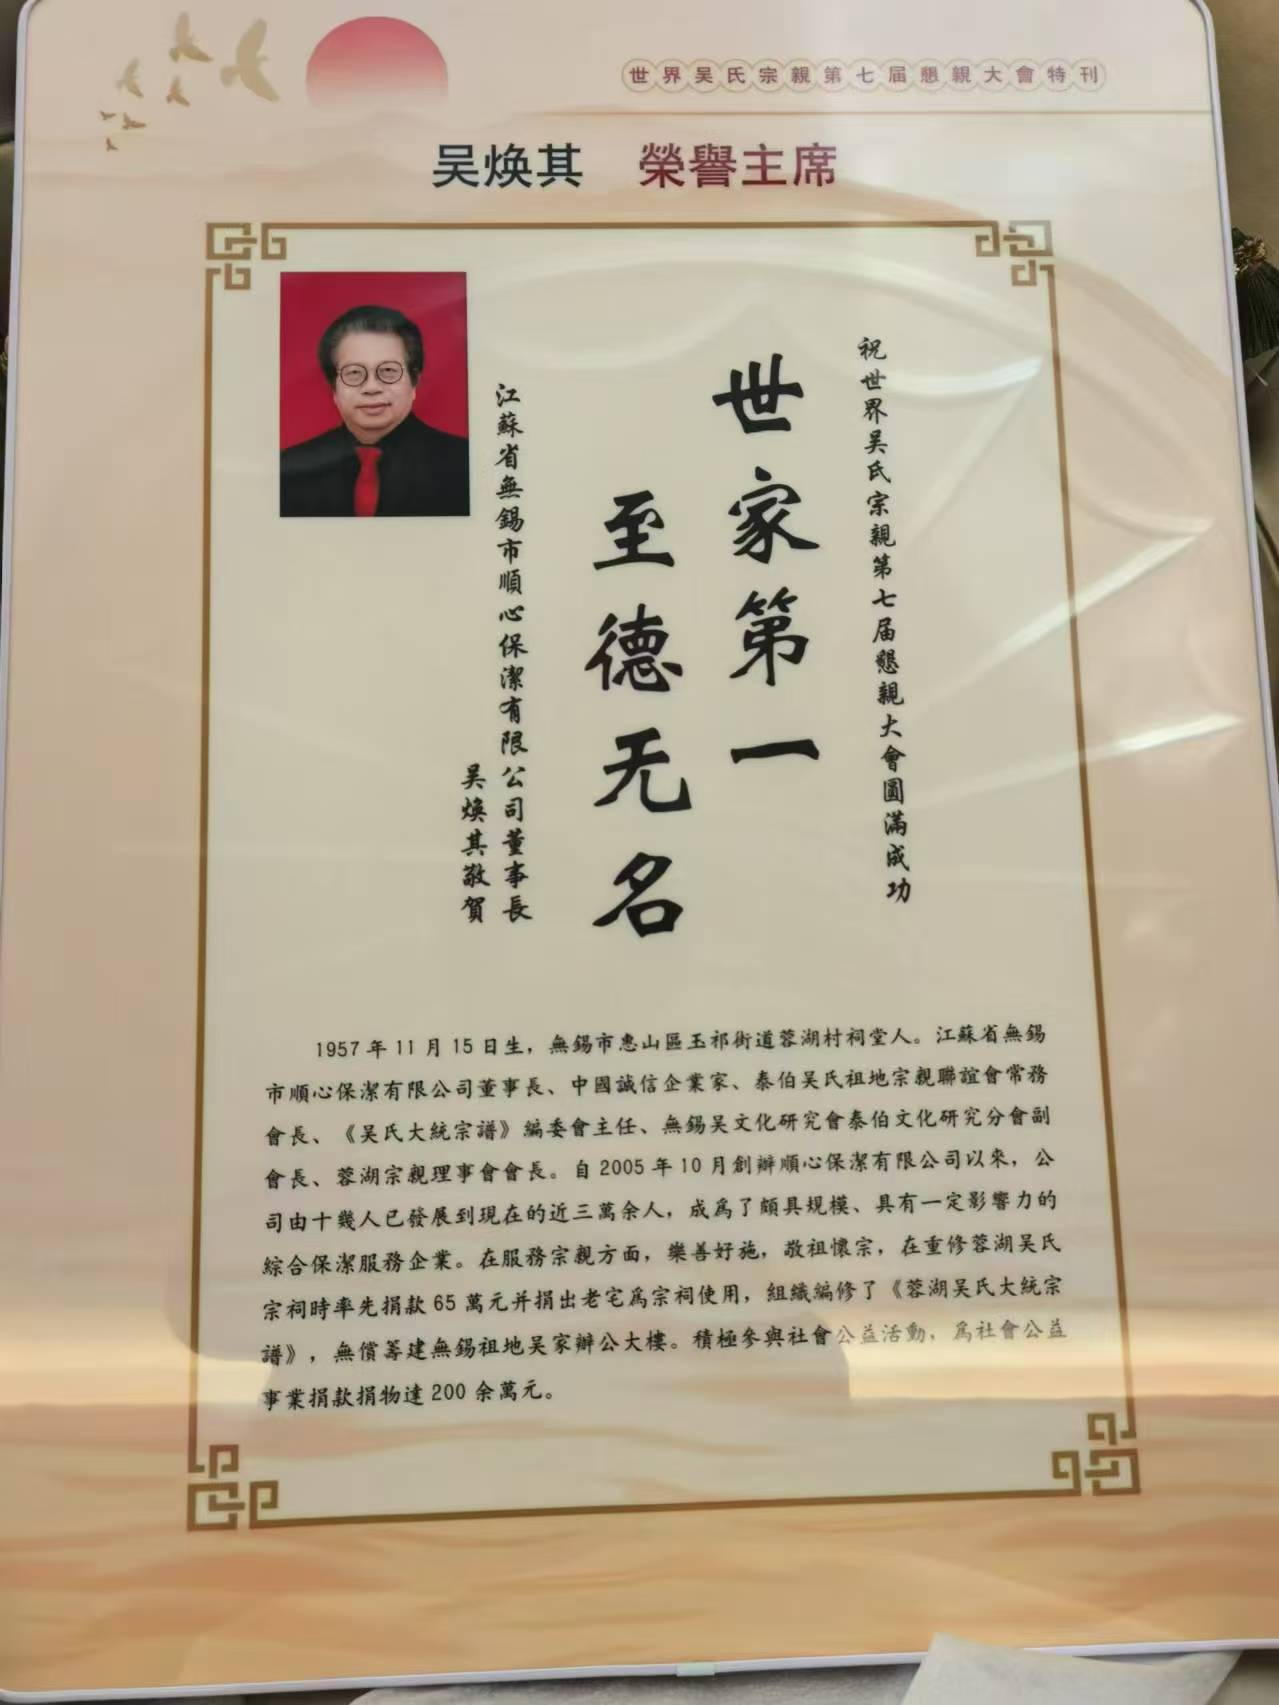 世界吴氏宗親第七届懇親大會特刊
吴焕其 榮譽主席
祝世界吴氏宗親第七届懇親大會圓滿成功
世家第一
至德无名
江蘇省無錫市順心保潔有限公司董事長
吴焕其敬賀
1957年11月15日生，無錫市惠山區玉祁街道蓉湖村祠堂人。江蘇省無錫
市順心保潔有限公司董事長、中國誠信企業家、泰伯吴氏祖地宗親聯誼會常務
會長、《吴氏大統宗譜》編委會主任、無錫吴文化研究會泰伯文化研究分會副
會長、蓉湖宗親理事會會長。自2005年10月創辦順心保潔有限公司以來，公
司由十幾人已發展到現在的近三萬余人，成爲了頗具規模、具有一定影響力的
綜合保潔服務企業。在服務宗親方面，樂善好施，敬祖懷宗，在重修蓉湖吴氏
宗祠時率先捐款65萬元并捐出老宅爲宗祠使用，組織編修了《蓉湖吴氏大統宗
譜》，無償籌建無錫祖地吴家辦公大樓。積極參與社會公益活動，爲社會公益
事業捐款捐物達200余萬元。